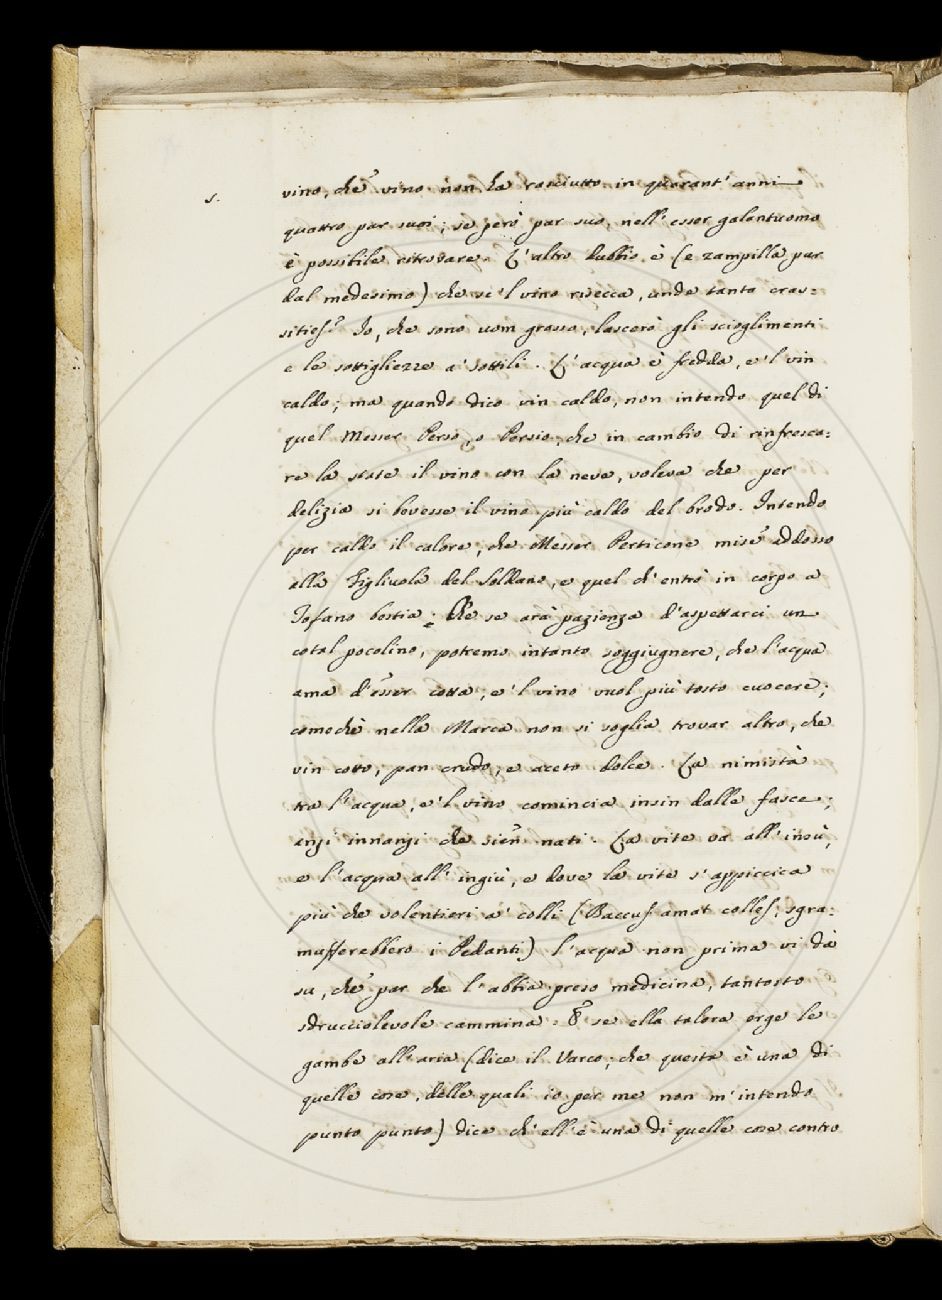 s.
vino, che vino non ha rasciutto in quarant' anni
quattro par suoi; se però par suo, nell' esser galantuomo
è possibile ritrovare. L' altro dubbio è (e zampilla pur
dal medesimo) che se 'l vino risecca, unde tanta cras=
sities? Io, che sono uom grosso, lascerò gli scioglimenti
e le sottigliezze a' sottili. L' acqua è fredda, e 'l vin
caldo; ma quando dico vin caldo, non intendo quel di
quel Messer Perso, o Persio, che in cambio di rinfresca=
re la state il vino con la neve, voleva che per
delizia si bevesse il vino più caldo del brodo. Intendo
per caldo il calore, che Messer Perticone mise addosso
alla Figliuola del Soldano, e quel ch' entrò in corpo a
Tofano bestia; Che se arà pazienza d' aspettarci un
cotal pocolino, potremo intanto soggiugnere, che l' acqua
ama d' esser cotta; e 'l vino vuol più tosto cuocere;
comechè nella Marca non si soglia trovar altro, che
vin cotto, pan crudo, e aceto dolce. La nimistà
tra l' acqua, e 'l vino comincia insin dalle fasce;
anzi innanzi che sien nati. La vite va all' insù,
e l' acqua all' ingiù, e dove la vite s' appiccica
più che volentieri a' colli (Baccus amat colles, sgra=
mufferebbero i Pedanti) l' acqua non prima vi dà
su, che par che l' abbia preso medicina, tantosto
sdrucciolevole cammina. E se ella talora erge le
gambe all' aria (dice il Varco, che questa è una di
quelle cose, delle quali io per me non m' intendo
punto punto) dice ch' ell' è una di quelle cose contro